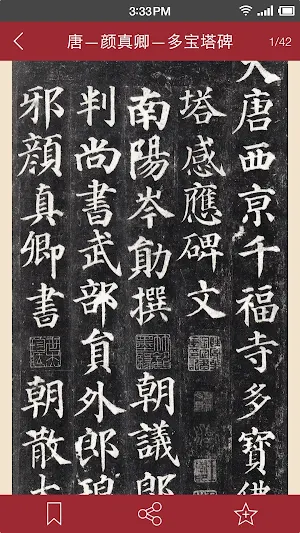 3:33PM
唐—颜真卿—多宝塔碑
1/42
大唐西京千福寺多寶佛
塔感應碑文
南陽岑勛撰 朝議
判尚書武部貟外郎琅
邪顏真卿書 朝散大